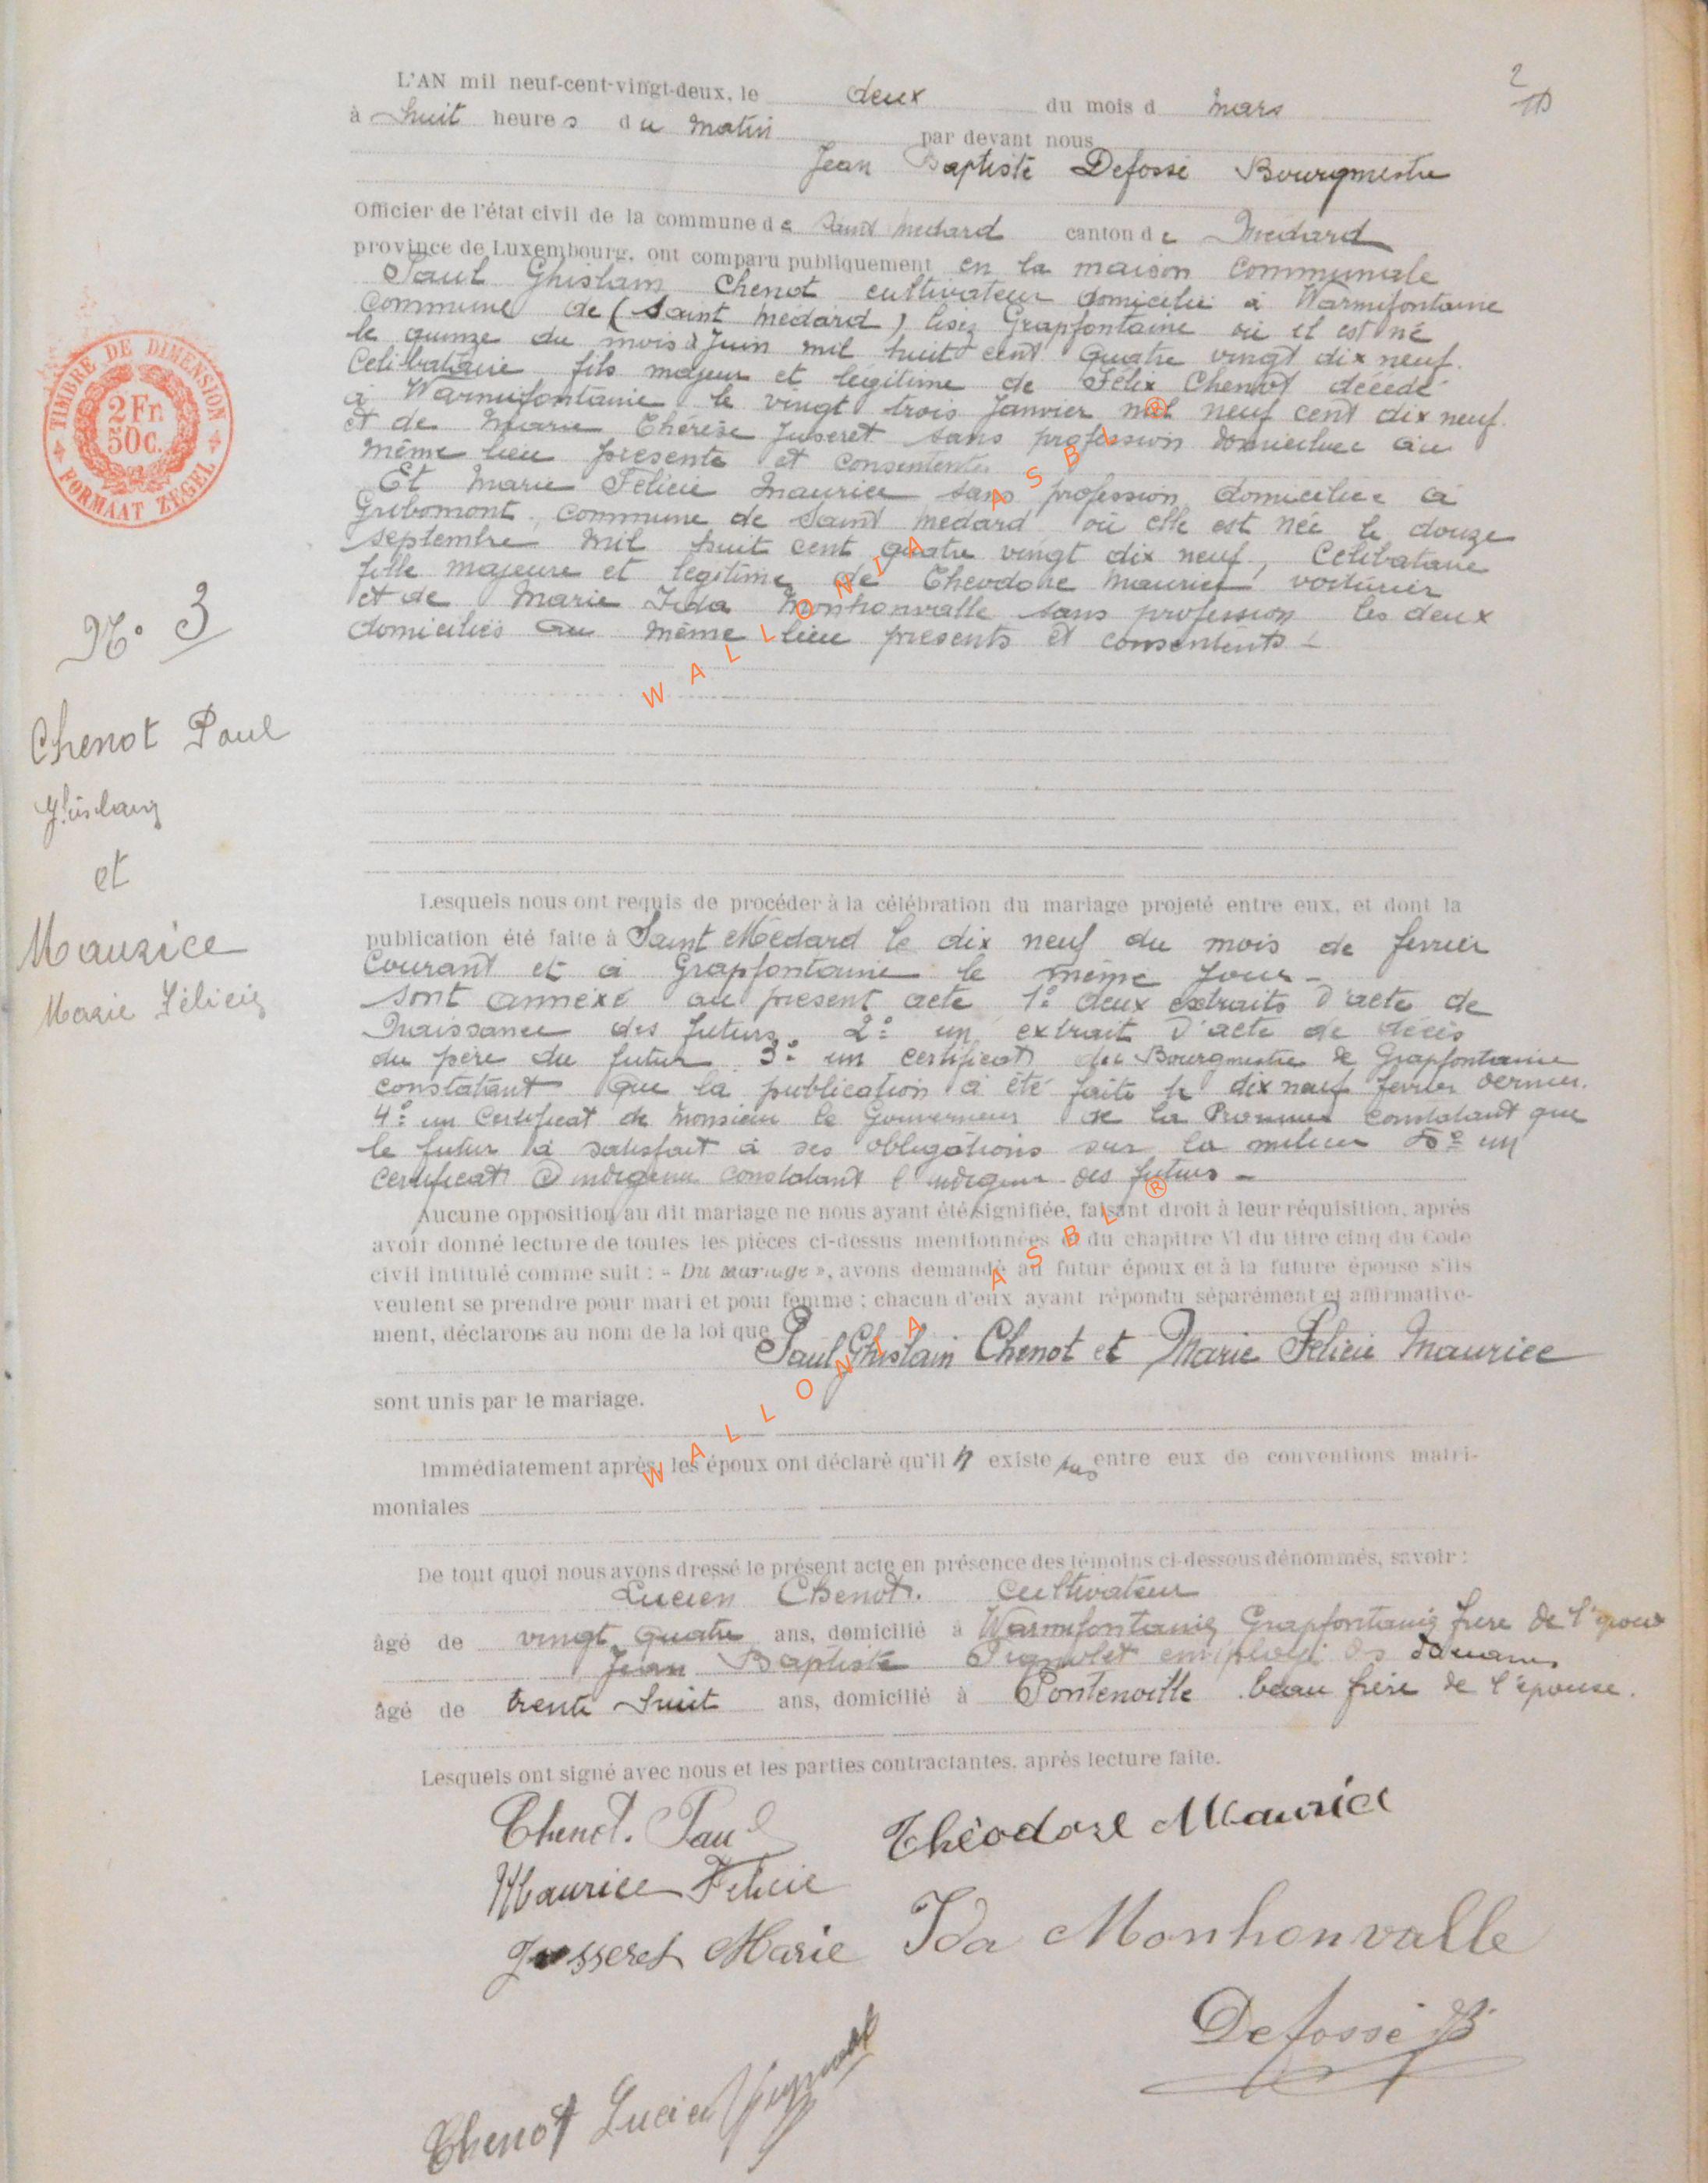 2
L'AN mil neuf-cent-vingt-deux, le deux du mois d mars
à huit heures du matin par devant nous
Jean Baptiste Defossé Bourgmestre
Officier de l'état civil de la commune de Saint Médard canton de Médard
province de Luxembourg, ont comparu publiquement en la maison communale
Paul Ghislain Chenot cultivateur domicilié à Warmifontaine
commune de (Saint Medard) lisez Grapfontaine où il est né
le quinze du mois d Juin mil huit cent quatre vingt dix neuf.
Celibataire fils majeur et légitime de Félix Chenot décédé
à Warmifontaine le vingt trois Janvier mil neuf cent dix neuf.
et de Marie Thérèse Juseret sans profession domiciliée au
même lieu presente et consentente
Et Marie Félicie Maurice sans profession domiciliée à
Gribomont, commune de Saint Medard où elle est née le douze
septembre mil huit cent quatre vingt dix neuf, Celibataire
fille majeure et legitime de Theodore Maurice voiturier
et de Marie Ida Monhonvalle sans profession les deux
domiciliés au même lieu presents et consentents -
TIMBRE DE DIMENSION
2 Fr.
50 c.
FORMAAT ZEGEL
N° 3
Chenot Paul
Ghislain
et
Maurice
Marie Félicie
Lesquels nous ont requis de procéder à la célébration du mariage projeté entre eux, et dont la
publication été faite à Saint Médard le dix neuf du mois de fevrier
Courant et à Grapfontaine le même jour -
sont annéxé au present acte 1° deux extraits d'acte de
Naissance des futurs 2° un extrait d'acte de décès
du père du futur 3° un certificat du Bourgmestre de Grapfontaine
constatant que la publication a été faite le dix neuf fevrier dernier.
4° un Certificat de Monsieur le Gouverneur de la Province constatant que
le futur a satisfait à ses obligations sur la milice 5° un
certificat d'indigence constatant l'indigence des futurs -
Aucune opposition au dit mariage ne nous ayant été signifiée, faisant droit à leur réquisition, après
avoir donné lecture de toutes les pièces ci-dessus mentionnées & du chapitre VI du titre cinq du Code
civil intitulé comme suit : « Du Mariage », avons demandé au futur époux et à la future épouse s'ils
veulent se prendre pour mari et pour femme ; chacun d'eux ayant répondu séparément et affirmative-
ment, déclarons au nom de la loi que
Paul Ghislain Chenot et Marie Felicie Maurice
sont unis par le mariage.
Immédiatement après, les époux ont déclaré qu'il n existe pas entre eux de conventions matri-
moniales
De tout quoi nous avons dressé le présent acte en présence des témoins ci-dessous dénommés, savoir :
Lucien Chenot. Cultivateur
âgé de vingt quatre ans, domicilié à Warmifontaine Grapfontaine frere de l'epoux
Jean Baptiste employé des douanes
âgé de trente huit ans, domicilié à Pontenoille beau frère de l'épouse.
Lesquels ont signé avec nous et les parties contractantes, après lecture faite.
Chenot. Paul
Théodore Maurice
Maurice Felicie
Jusseret Marie
Ida Monhonvalle
Defossé JB
Chenot Lucien
WALLONIA ASBL ®
WALLONIA ASBL ®